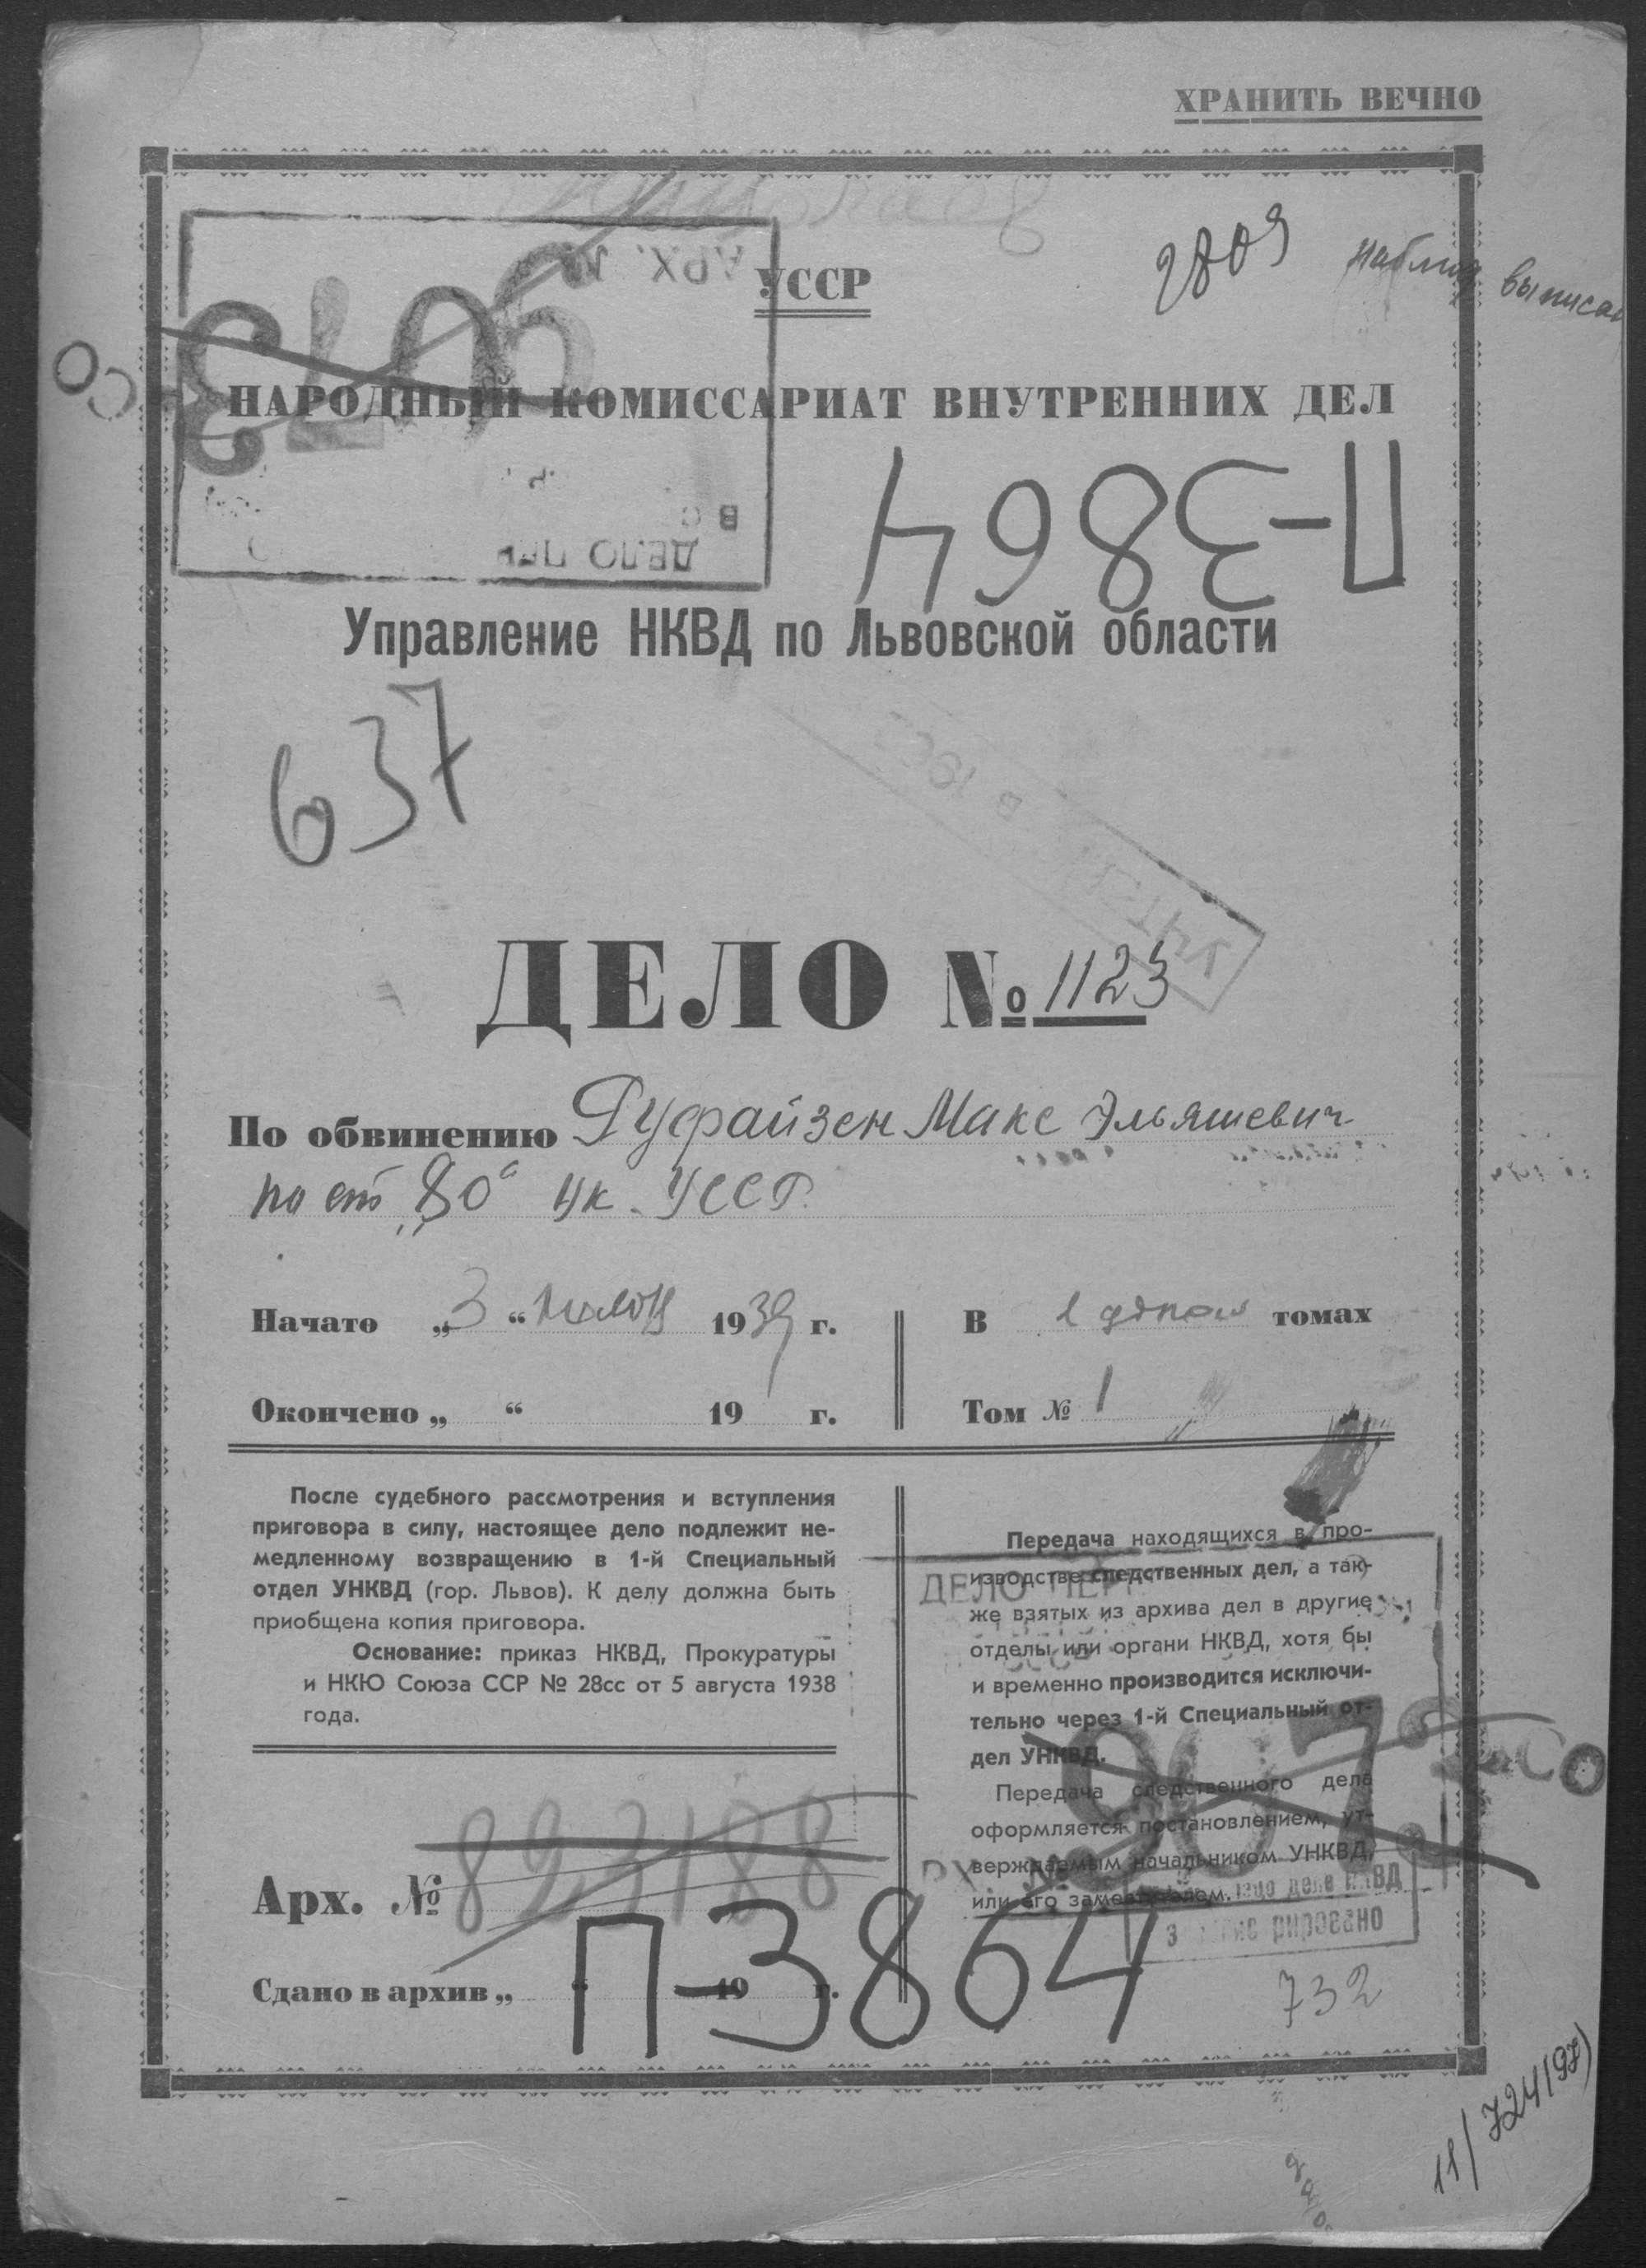 ХРАНИТЬ ВЕЧНО
УССР
2809
выписан
НАРОДНЫЙ КОМИССАРИАТ ВНУТРЕННИХ ДЕЛ
П-3864
Управление НКВД по Львовской области
637
ДЕЛО № 1123
По обвинению Руфайзен Макс Эльяшевич
по ст "80" УК. УССР.
Начато „3“ 1939 г.
В 1 одном томах
Окончено „ “ 19 г.
Том № 1
После судебного рассмотрения и вступления
приговора в силу, настоящее дело подлежит не-
медленному возвращению в 1-й Специальный
отдел УНКВД (гор. Львов). К делу должна быть
приобщена копия приговора.
Основание: приказ НКВД, Прокуратуры
и НКЮ Союза ССР № 28сс от 5 августа 1938
года.
Передача находящихся в про-
изводстве следственных дел, а так-
же взятых из архива дел в другие
отделы или органи НКВД, хотя бы
и временно производится исключи-
тельно через 1-й Специальный от-
дел УНКВД.
Передача следственного дела
оформляется постановлением, ут-
верждаемым начальником УНКВД,
или его заместителем.
ДЕЛО
Арх. № 823188
Сдано в архив „ “ 19 г.
П-3864
732